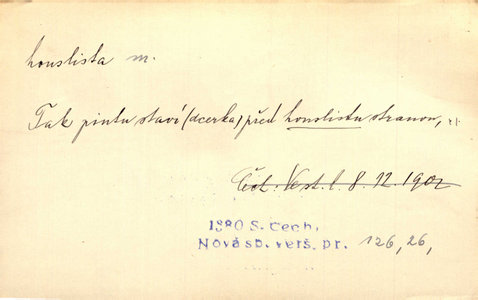 houslista m.
Tak pintu staví (dcerka) před houslistu stranou, ..
Čel. Vest. l. 8. 12. 1902
1880 S. Čech,
Nová sb. verš. pr. 126, 26,